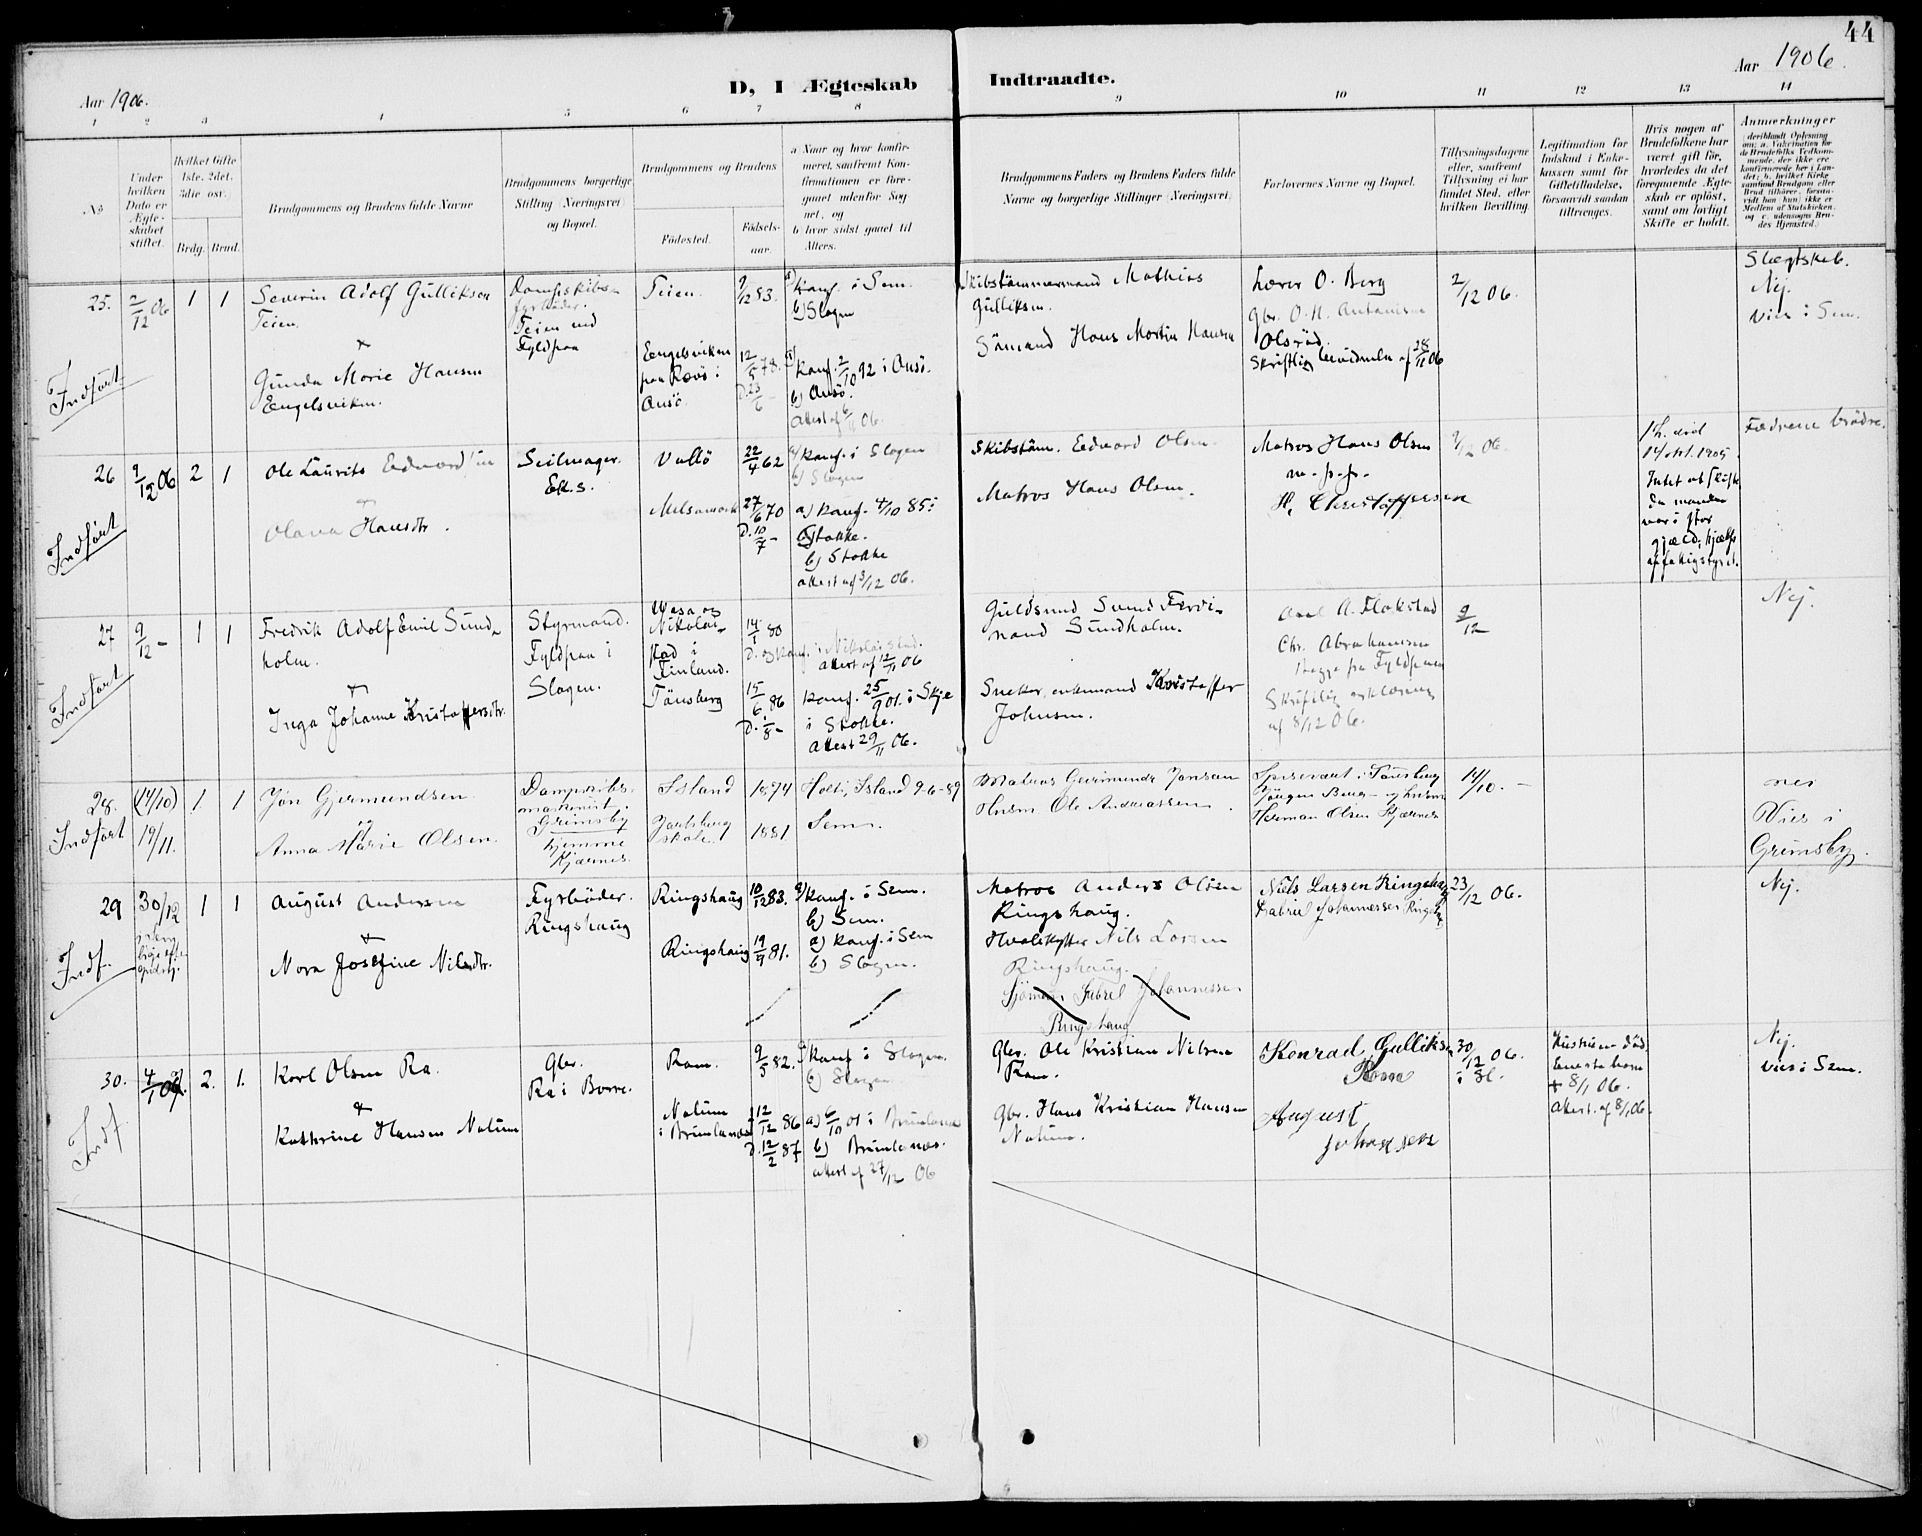 44
Aar 1906.
D, I Ægteskab Indtraadte.
Aar 1906.
1 2 3 4 5 6 7 8 9 10 11 12 13 14
No
Under hvilken Dato er Ægteskabet stiftet.
Hvilket Gifte 1ste, 2det, 3die osv.
Brdg. Brud.
Brudgommens og Brudens fulde Navne
Brudgommens borgerlige Stilling (Næringsvei) og Bopæl.
Brudgommens og Brudens
Fødested.
Fødsels-aar.
a Naar og hvor konfirmeret, saafremt Konfirmationen er foregaaet udenfor Sognet, og
b hvor sidst gaaet til Alters.
Brudgommens Faders og Brudens Faders fulde Navne og borgerlige Stillinger (Næringsvei)
Forlovernes Navne og Bopæl.
Tillysningsdagene eller, saafremt Tillysning ei har fundet Sted, efter hvilken Bevilling
Legitimation for Indskud i Enkekassen samt for Giftetilladelse, forsaavidt saadan tiltrænges.
Hvis nogen af Brudefolkene har været gift før, hvorledes da det foregaaende Ægteskab er opløst, samt om lovligt Skifte er holdt.
Anmærkninger
25. 2/12 06 1 1
Severin Adolf Gulliksen
Teien.
&
Gunda Marie Hansen
Engelsviken.
Dampskibs-
fyrbøder.
Teien ved
Fyldpaa
Teien.
Engelsviken
paa Rævø i
Onsø.
9/12 83.
12/5 78.
D. 23/6 -
a) Konf. i Sem.
b) Slagen
a) Konf. 2/10 92 i Onsø.
b) Onsø.
Attest af 6/11 06.
Skibstømmermand Mathias
Gulliksen.
Sømand Hans Martin Hansen
Lærer O. Berg
Gbr. O. H. Antonisen
Olsrød.
2/12 06.
Slægtskab.
Nej.
Viet i Sem.
Indført
26 9/12 06 2 1
Ole Laurits Edvardsen
&
Olava Hansdtr.
Seilmager.
Ek. s.
Vallø
Melsomvik
22/4 62
27/6 70
D. 10/7 -
a) Konf. i Slagen
b) Slagen
a) Konf. 4/10 85 i
Stokke.
b) Stokke
attest af 3/12 06.
Skibstøm. Edvard Olsen.
Matros Hans Olsen.
Matros Hans Olsen
m. p. p.
H. Christoffersen
9/12 06.
14 okt. 1905
Intet at skifte
da manden
var i stor
gjæld;
Fædrene brødre.
Indført
27 9/12 - 1 1
Fredrik Adolf Emil Sund-
holm.
&
Inga Johanne Kristoffersdtr.
Styrmand.
Fyldpaa i
Slagen.
Wasa og
Nikolai-
stad i
Finland.
Tønsberg
14/1 80
15/6. 86
D. /8 -
Konf. i Nikolaistad.
Attest af 12/11 06
Konf. 25/9 01. i Skje
i Stokke.
Attest 29/11 06.
Guldsmed Sund Ferdi-
nand Sundholm.
Snekker, enkemand Kristoffer
Johnsen.
Axel A. Flakstad
Chr. Abrahamsen
Begge fra Fyldpaa
Skriftlig erklæring
af 8/12 06.
9/12
Nej.
Indført
28. (14/10) 19/11. 1. 1
Jón Gjermundsen
og
Anna Marie Olsen.
Dampskibs-
maskinist.
Grimsby
hjemme
Kjærnes.
Island
Jarlsberg
skole.
1874
1881.
Holt, Island 9-6-89
Sem.
Matros Geirmundr Jonsson
Husm. Ole Andreassen.
Spisevært i Tønsberg
Jørgen Berg og husm.
Herman Olsen Kjærnes
14/10. -
nei
Viet i
Grimsby.
Indført
29 30/12 1 1
August Andersen
&
Nora Josefine Nilsdtr.
Fyrbøder.
Ringshaug
Ringshaug
Ringshaug
10/12 83.
19/9 81.
a) Konf. i Sem.
b) Sem.
a) Konf. i Sem
b) Slagen.
Matros Anders Olsen
Ringshaug.
Hvalskytter Nils Larsen
Ringshaug.
Sjømand Gabriel Johannessen
Ringshaug
Niels Larsen Ringshaug
Gabriel Johannessen Ringshaug
23/12 06.
Nej.
Indf.
30. 4/1 07. 2. 1.
Karl Olsen Ra.
&
Kathrine Hansen Nalum
Gbr.
Ra i Borre.
Ram.
Nalum
i Brunlanæs
9/5 82.
12/12 86
D. 12/2 87
a) Konf i Slagen.
b) Slagen
a) 6/10 01 i Brunlanæs
b) Brunlanæs.
attest af 27/12 06
Gbr. Ole Kristian Nilsen
Ram.
Gbr. Hans Kristian Hansen
Nalum.
Konrad Gulliksen
August
Johansen
30/12 06.
i Sl.
Hustruen død.
Eneste barn
+ 8/1 06.
Attest. af 8/1 06.
Nej.
Viet i Sem.
Indf.